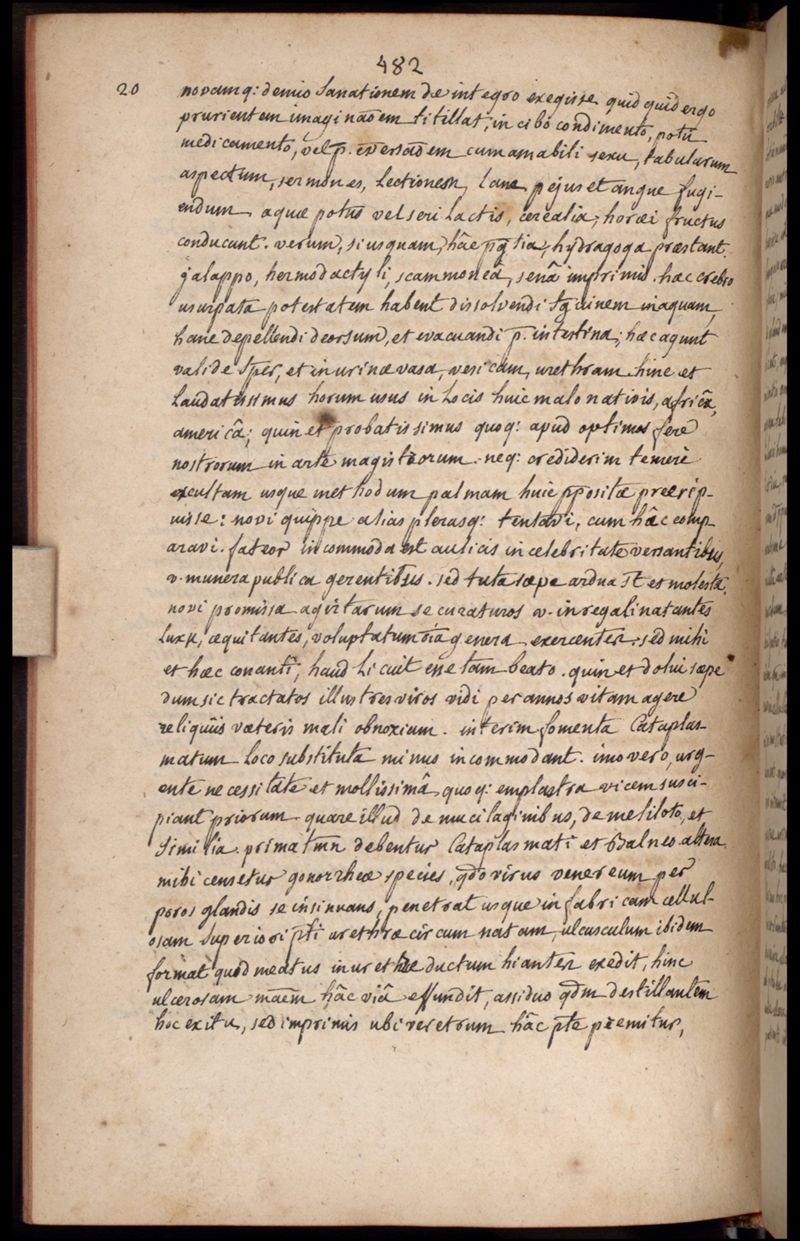 482
20 novamq: demio Sanationem de integro exegisse. quid quid ergo
prurientem imaginãoem titillat, in cibo condimento, potu
medicamento, vel p. eversãoem cum amabili sexu, tabularum
aspectum, sermones, Lectionem, Cane pejus et angue fugi-
endum. aquæ potus vel seri Lactis, cerealia, horæi fructus
conducunt. verum, si usquam, hâc hydragoga præstant.
jalappo, hermodactyli, scammoneâ, senâ imprimis. hæc crebro
usurpata potestatem habent dissolvendi sgůinem in aquam,
hanc depellendi deorsum, et evacuandi p. intestina; hæc agunt
valide sper, et in urinæ vasa, vesicam, urethram. hinc et
Laudatissimus horum usus in Locis huic malo nativis, africâ,
americâ; quin et probatissimus quoq: apud optimos fere
nostrorum in arte magistrorum. neq: crediderim temere
excultam usque methodum palmam huic ppositæ præerip-
uisse: novi quippe alias plerasq: tentavi, cum hâc comp-
aravi. fateor incommoda est aulicis in celebritate versantibus,
v. munera publica gerentibus. sed tuta sæpe ardua st et molesta.
novi promissa agirtarum se curaturos v. in regali natantes
Luxu, æquitantes, voluptatum oia genera exercentes. sed mihi
et hæc conanti, haud Licuit esse tam beato. quin et dolui sæpe
dum sic tractatos illustres viros vidi per annos vitam agere
reliquiis væteris mali obnoxiam. interim fomenta Cataplas-
matum Loco substituta minus incommodant. imo vero, urg-
ente necessitate et mollissimâ quoq: emplastra vicem susci-
piant priorum. quare illud de mucilaginibus, de meliloto, et
Similia. prima tmn debentur Cataplasmati et Balneo. altera
mihi censetur gonorrheæ species, qdo virus venereum per
poros glandis se insinuans, penetrat usque in fabricam cellul-
osam superiori pti urethræ circum natam, ulcusculum ibidem
format quod meatus in urethræ ductum hiantes exedit, hinc
ulcerosam maem hâc viâ effundit, assiduo qdm destillantem
hoc exitu, sed imprimis ubi veretrum hâc pte premitur,